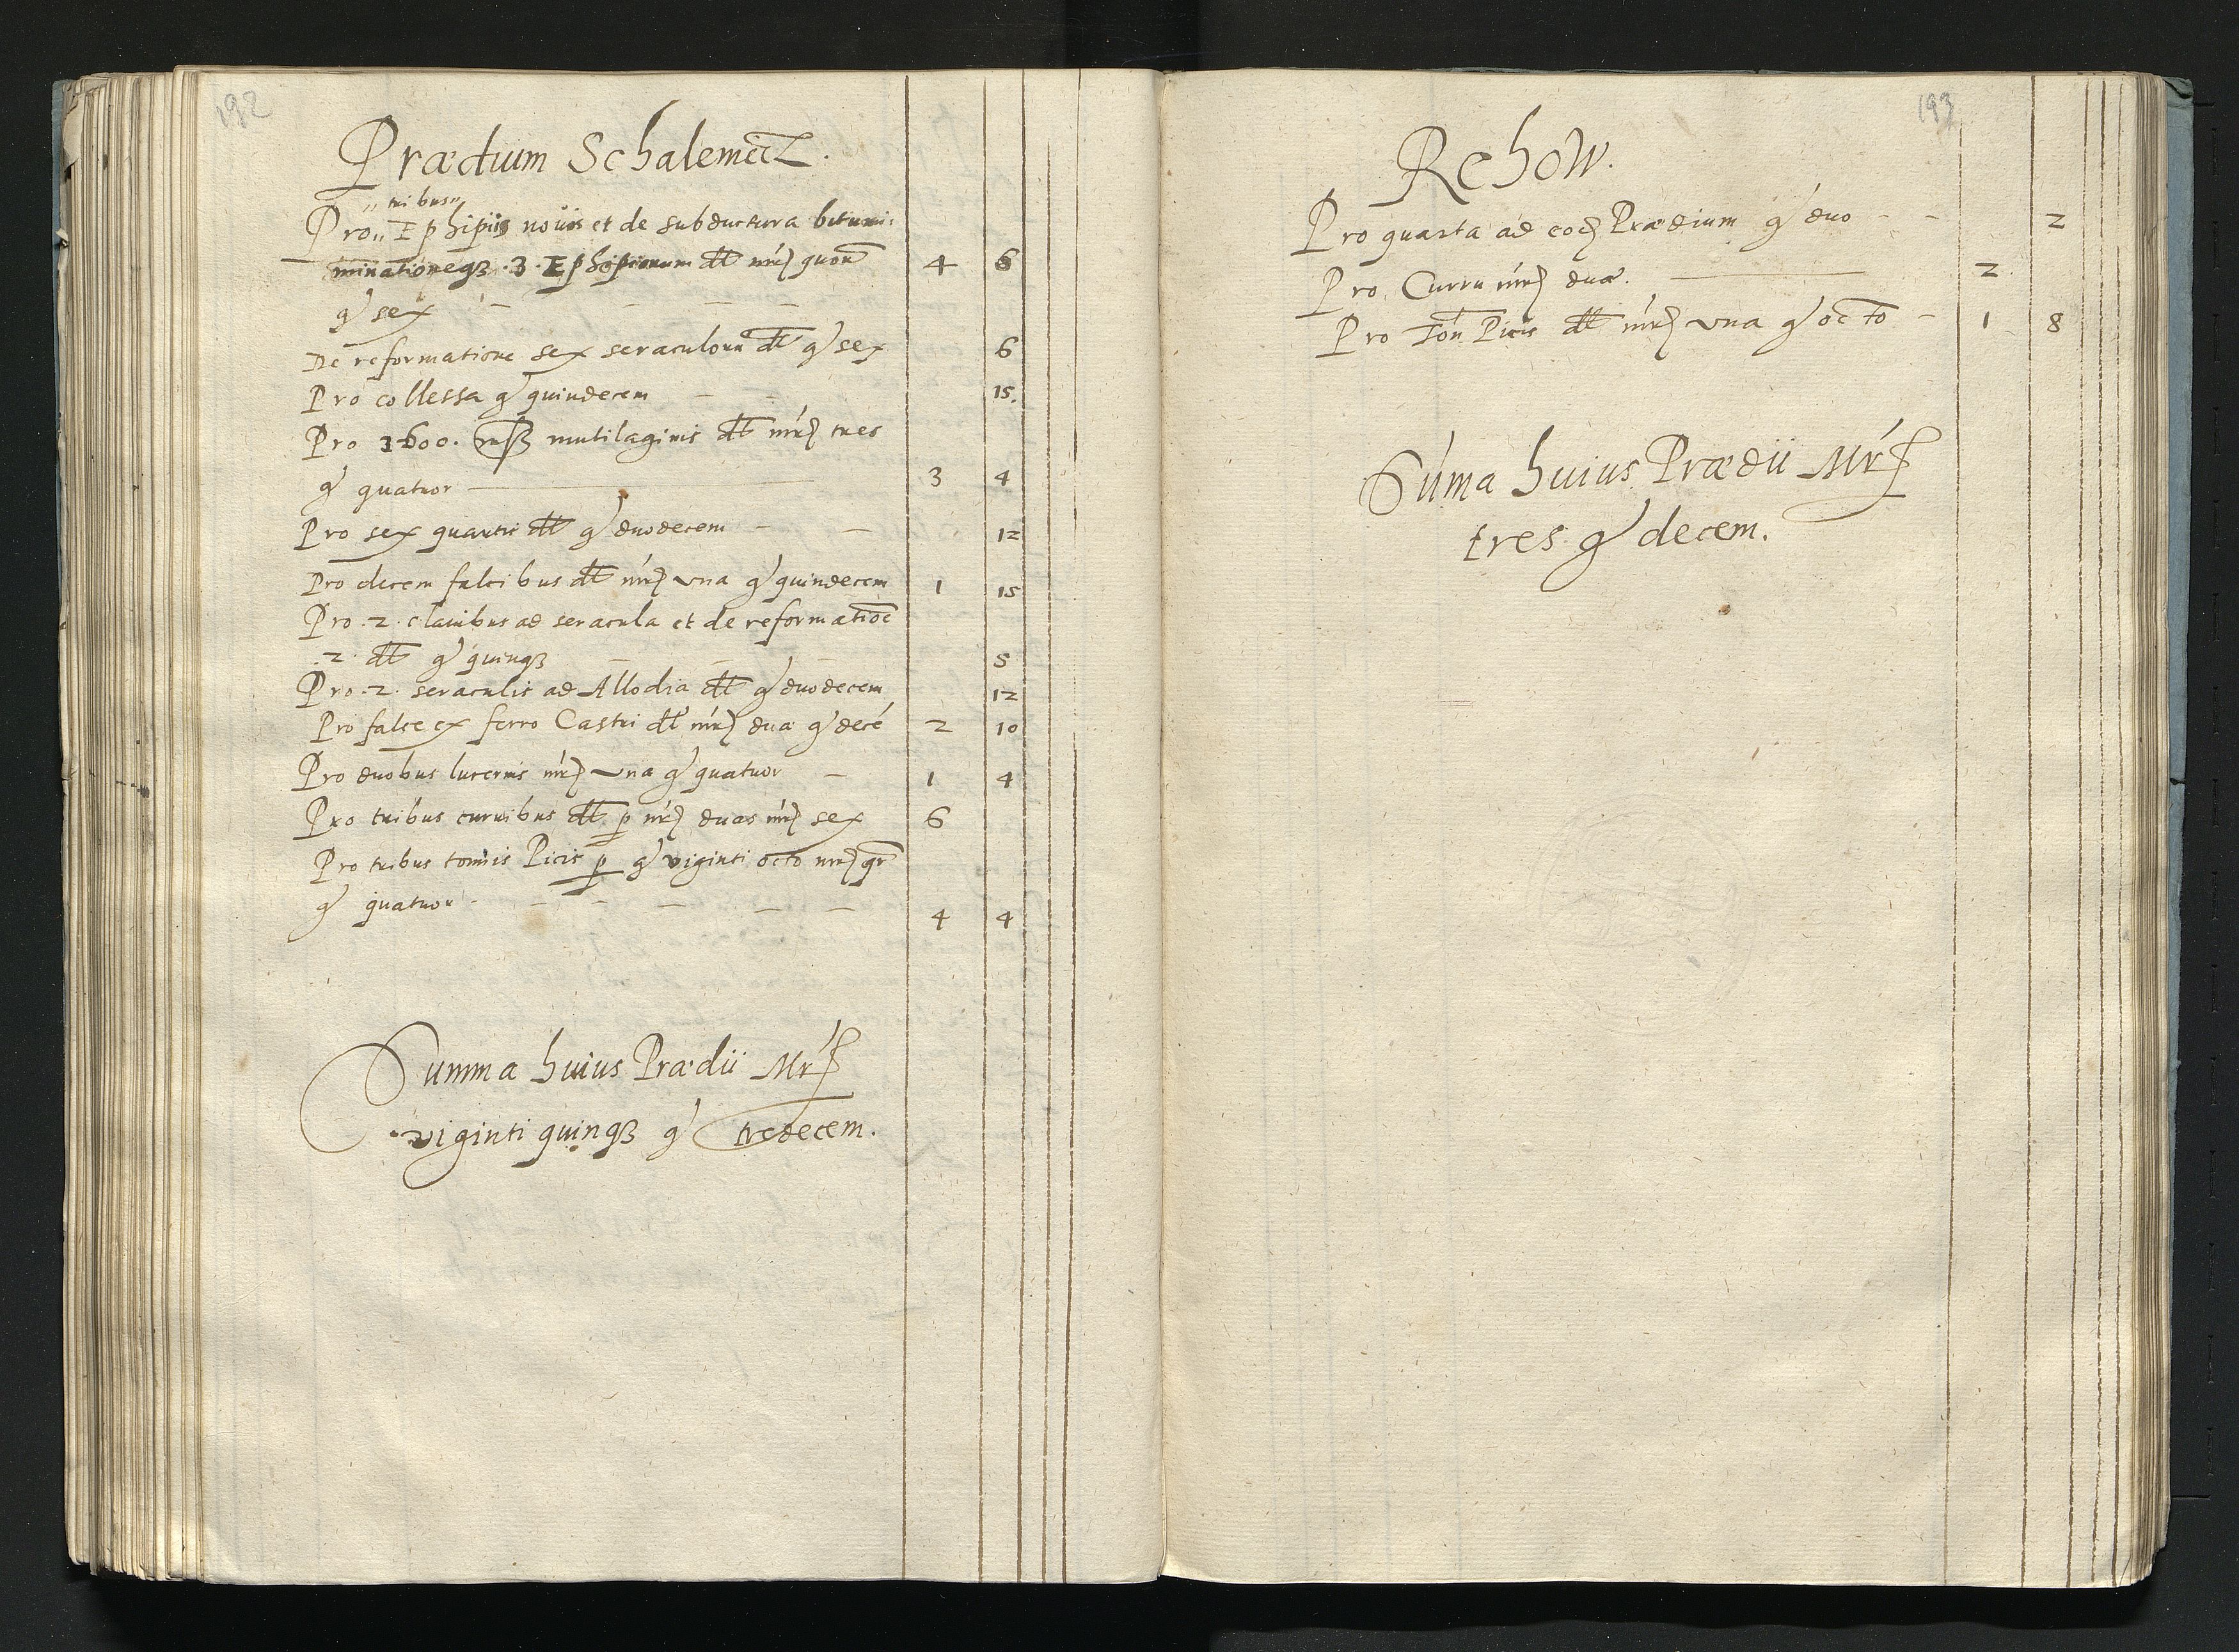 192
Prædium Schalemecz.
„tribus„
Pro„ Ephipiis noviis et de subductura bitumi:
minationeqз .3. Ephipiorum dt mrc quor 4 6
g sex
De reformatione sex seraculorum dt g sex 6
Pro collessa g quindecem 15.
Pro 3600. mutilaginis dt mrc tres
g quatuor 3 4
Pro sex quartis dt g duodecem 12
Pro decem falcibus dt mrc una g quindecem 1 15
Pro .2. clavibus ad seracula et de reformatioe
.2. dt g quinqз 5
Pro .2. seraculis ad Allodia dt g duodecem 12
Pro falce ex ferro Castri dt mrc dua g decé 2 10
Pro duobus lucernis mrc una g quatuor 1 4
Pro tribus curribus dt p mrc duas mrc sex 6
Pro tribus tonnis Picis p g viginti octo mrc qr
g quatuor 4 4
Summa huius Prædii Mrc
viginti quinqз g tredecem.
193
Rehow.
Pro quarta ad eod Prædium g duo 2
Pro Curru mrc duæ. 2
Pro Ton Picis dt mrc una g octo 1 8
Suma huius Prædii Mrc
tres g decem.